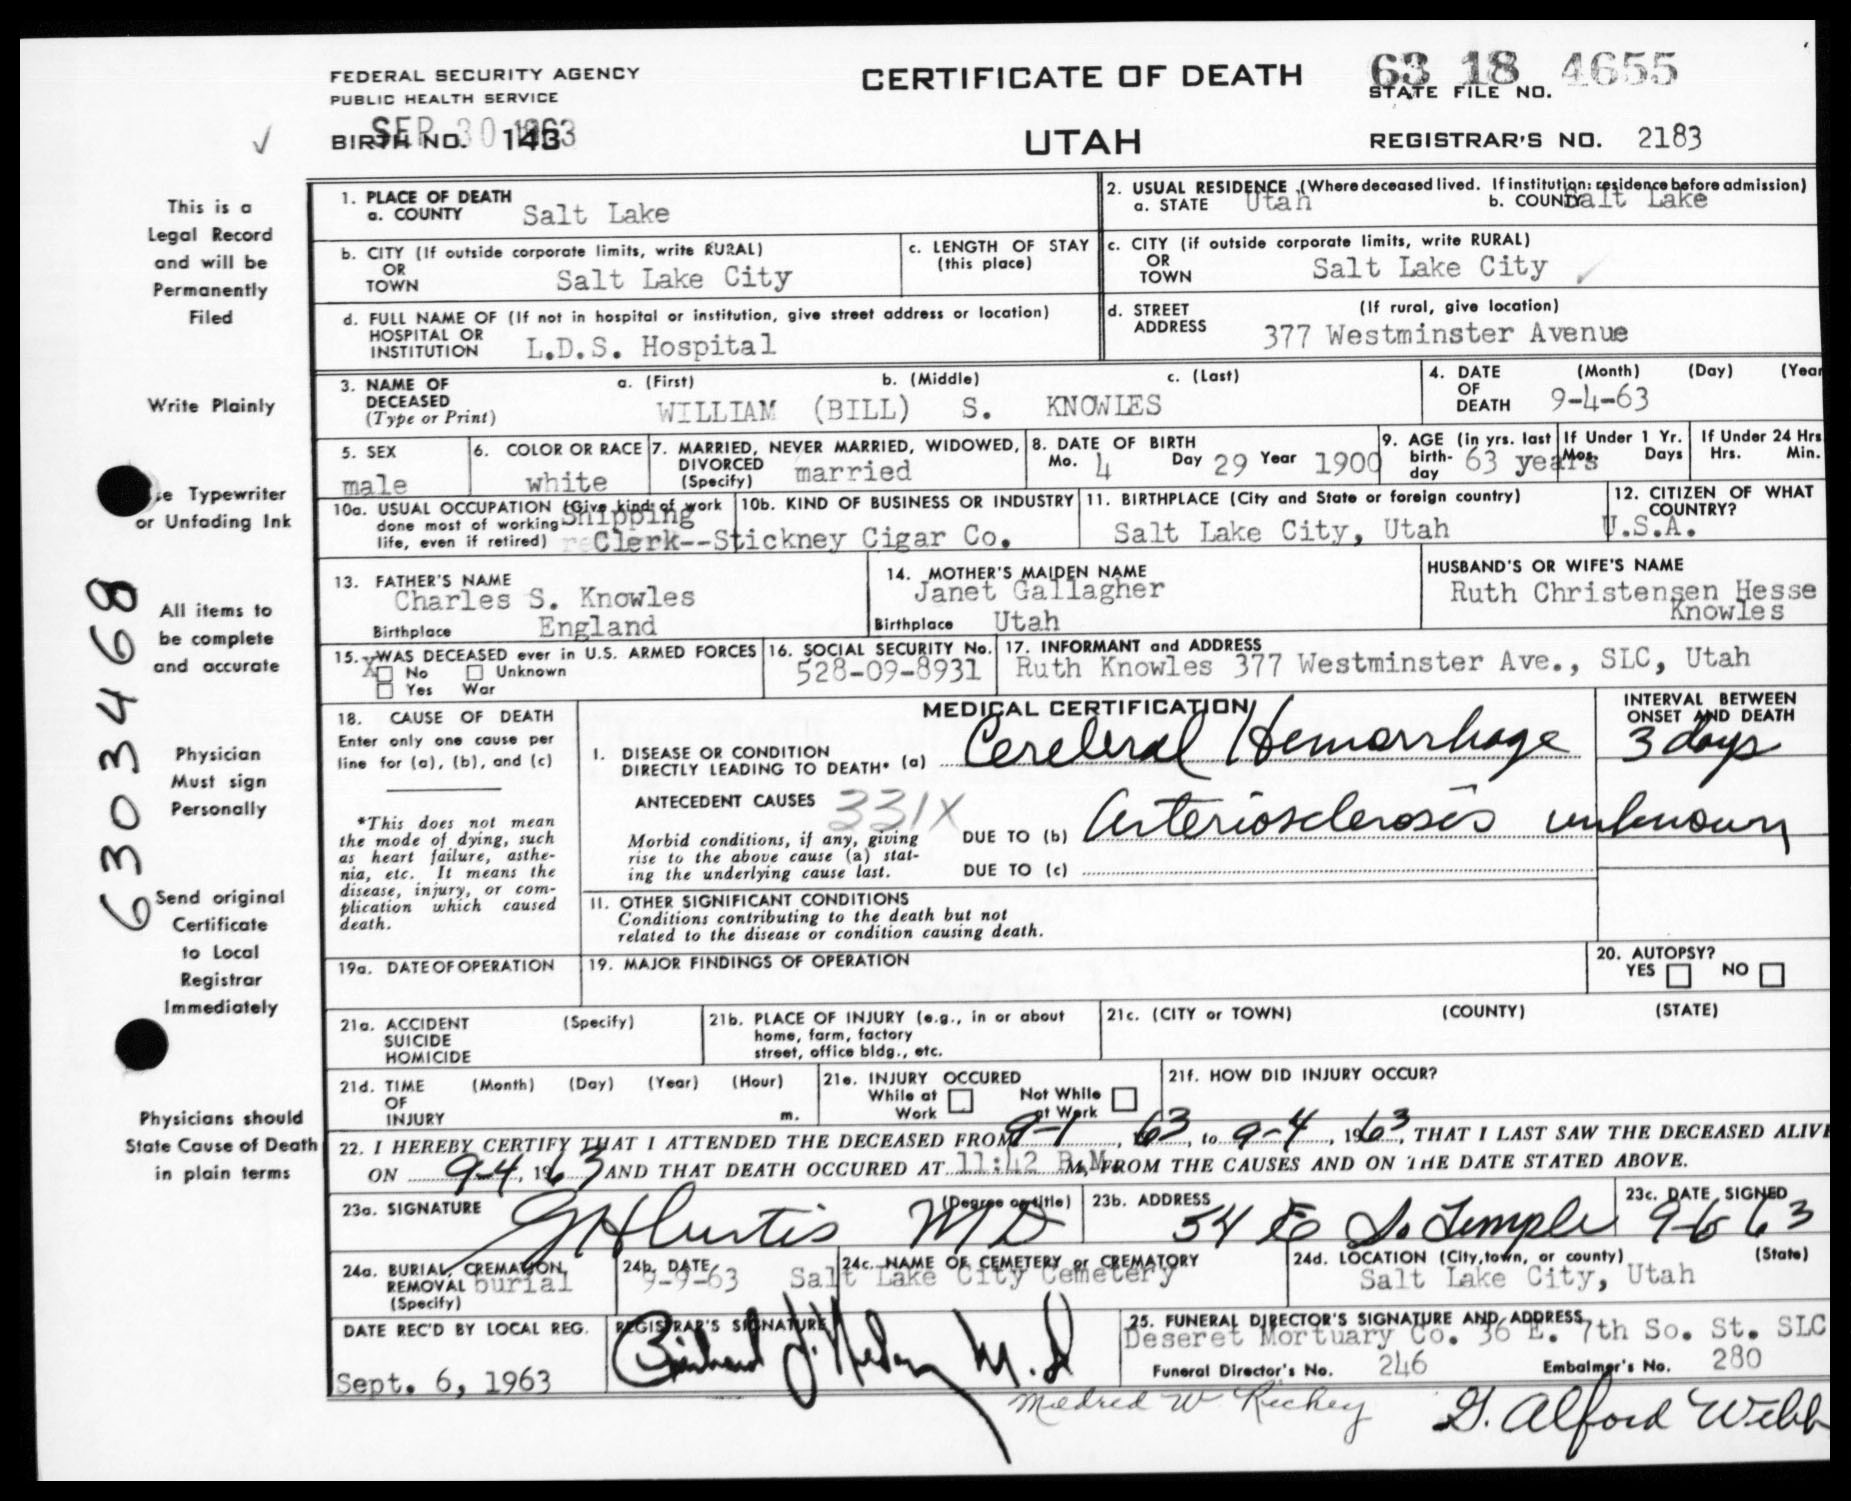 FEDERAL SECURITY AGENCY
PUBLIC HEALTH SERVICE
CERTIFICATE OF DEATH
63 18 4655
STATE FILE NO.
SEP 30 1963
BIRTH NO. 143
UTAH
REGISTRAR'S NO. 2183
This is a
Legal Record
and will be
Permanently
Filed
Write Plainly
Typewriter
or Unfading Ink
All items to
be complete
and accurate
Physician
Must sign
Personally
Send original
Certificate
to Local
Registrar
Immediately
Physicians should
State Cause of Death
in plain terms
6303468
1. PLACE OF DEATH
a. COUNTY Salt Lake
2. USUAL RESIDENCE (Where deceased lived. If institution: residence before admission)
a. STATE Utah b. COUNTY Salt Lake
b. CITY (If outside corporate limits, write RURAL)
OR
TOWN Salt Lake City
c. LENGTH OF STAY
(this place)
c. CITY (if outside corporate limits, write RURAL)
OR
TOWN Salt Lake City
d. FULL NAME OF (If not in hospital or institution, give street address or location)
HOSPITAL OR
INSTITUTION L.D.S. Hospital
d. STREET (If rural, give location)
ADDRESS 377 Westminster Avenue
3. NAME OF DECEASED
(Type or Print)
a. (First) b. (Middle) c. (Last)
WILLIAM (BILL) S. KNOWLES
4. DATE (Month) (Day) (Year
OF
DEATH 9-4-63
5. SEX
male
6. COLOR OR RACE
white
7. MARRIED, NEVER MARRIED, WIDOWED,
DIVORCED
(Specify) married
8. DATE OF BIRTH
Mo. 4 Day 29 Year 1900
9. AGE (in yrs. last
birth-
day 63 years
If Under 1 Yr.
Mos. Days
If Under 24 Hrs
Hrs. Min.
10a. USUAL OCCUPATION (Give kind of work
done most of working
life, even if retired)
Shipping
Clerk--Stickney Cigar Co.
10b. KIND OF BUSINESS OR INDUSTRY
11. BIRTHPLACE (City and State or foreign country)
Salt Lake City, Utah
12. CITIZEN OF WHAT
COUNTRY?
U.S.A.
13. FATHER'S NAME
Charles S. Knowles
Birthplace England
14. MOTHER'S MAIDEN NAME
Janet Gallagher
Birthplace Utah
HUSBAND'S OR WIFE'S NAME
Ruth Christensen Hesse
Knowles
15. WAS DECEASED ever in U.S. ARMED FORCES
X No Unknown
Yes War
16. SOCIAL SECURITY No.
528-09-8931
17. INFORMANT and ADDRESS
Ruth Knowles 377 Westminster Ave., SLC, Utah
18. CAUSE OF DEATH
Enter only one cause per
line for (a), (b), and (c)
*This does not mean
the mode of dying, such
as heart failure, asthe-
nia, etc. It means the
disease, injury, or com-
plication which caused
death.
MEDICAL CERTIFICATION
INTERVAL BETWEEN
ONSET AND DEATH
I. DISEASE OR CONDITION
DIRECTLY LEADING TO DEATH* (a) Cerebral Hemorrhage 3 days
ANTECEDENT CAUSES 331X
Morbid conditions, if any, giving
rise to the above cause (a) stat-
ing the underlying cause last.
DUE TO (b) Arteriosclerosis unknown
DUE TO (c)
II. OTHER SIGNIFICANT CONDITIONS
Conditions contributing to the death but not
related to the disease or condition causing death.
19a. DATE OF OPERATION
19. MAJOR FINDINGS OF OPERATION
20. AUTOPSY?
YES NO
21a. ACCIDENT (Specify)
SUICIDE
HOMICIDE
21b. PLACE OF INJURY (e.g., in or about
home, farm, factory
street, office bldg., etc.
21c. (CITY or TOWN) (COUNTY) (STATE)
21d. TIME (Month) (Day) (Year) (Hour)
OF
INJURY m.
21e. INJURY OCCURED
While at Work Not While at Work
21f. HOW DID INJURY OCCUR?
22. I HEREBY CERTIFY THAT I ATTENDED THE DECEASED FROM 9-1, 1963, to 9-4, 1963, THAT I LAST SAW THE DECEASED ALIVE
ON 9-4, 1963 AND THAT DEATH OCCURED AT 11:42 P.M. M, FROM THE CAUSES AND ON THE DATE STATED ABOVE.
23a. SIGNATURE (Degree or title)
G H Curtis MD
23b. ADDRESS
54 E So. Temple
23c. DATE SIGNED
9-6-63
24a. BURIAL, CREMATION,
REMOVAL burial
(Specify)
24b. DATE
9-9-63
24c. NAME OF CEMETERY or CREMATORY
Salt Lake City Cemetery
24d. LOCATION (City, town, or county) (State)
Salt Lake City, Utah
DATE REC'D BY LOCAL REG.
Sept. 6, 1963
REGISTRAR'S SIGNATURE
M.D
25. FUNERAL DIRECTOR'S SIGNATURE AND ADDRESS
Deseret Mortuary Co. 36 E. 7th So. St. SLC
Funeral Director's No. 246 Embalmer's No. 280
Mildred W Richey
G. Alford Webb